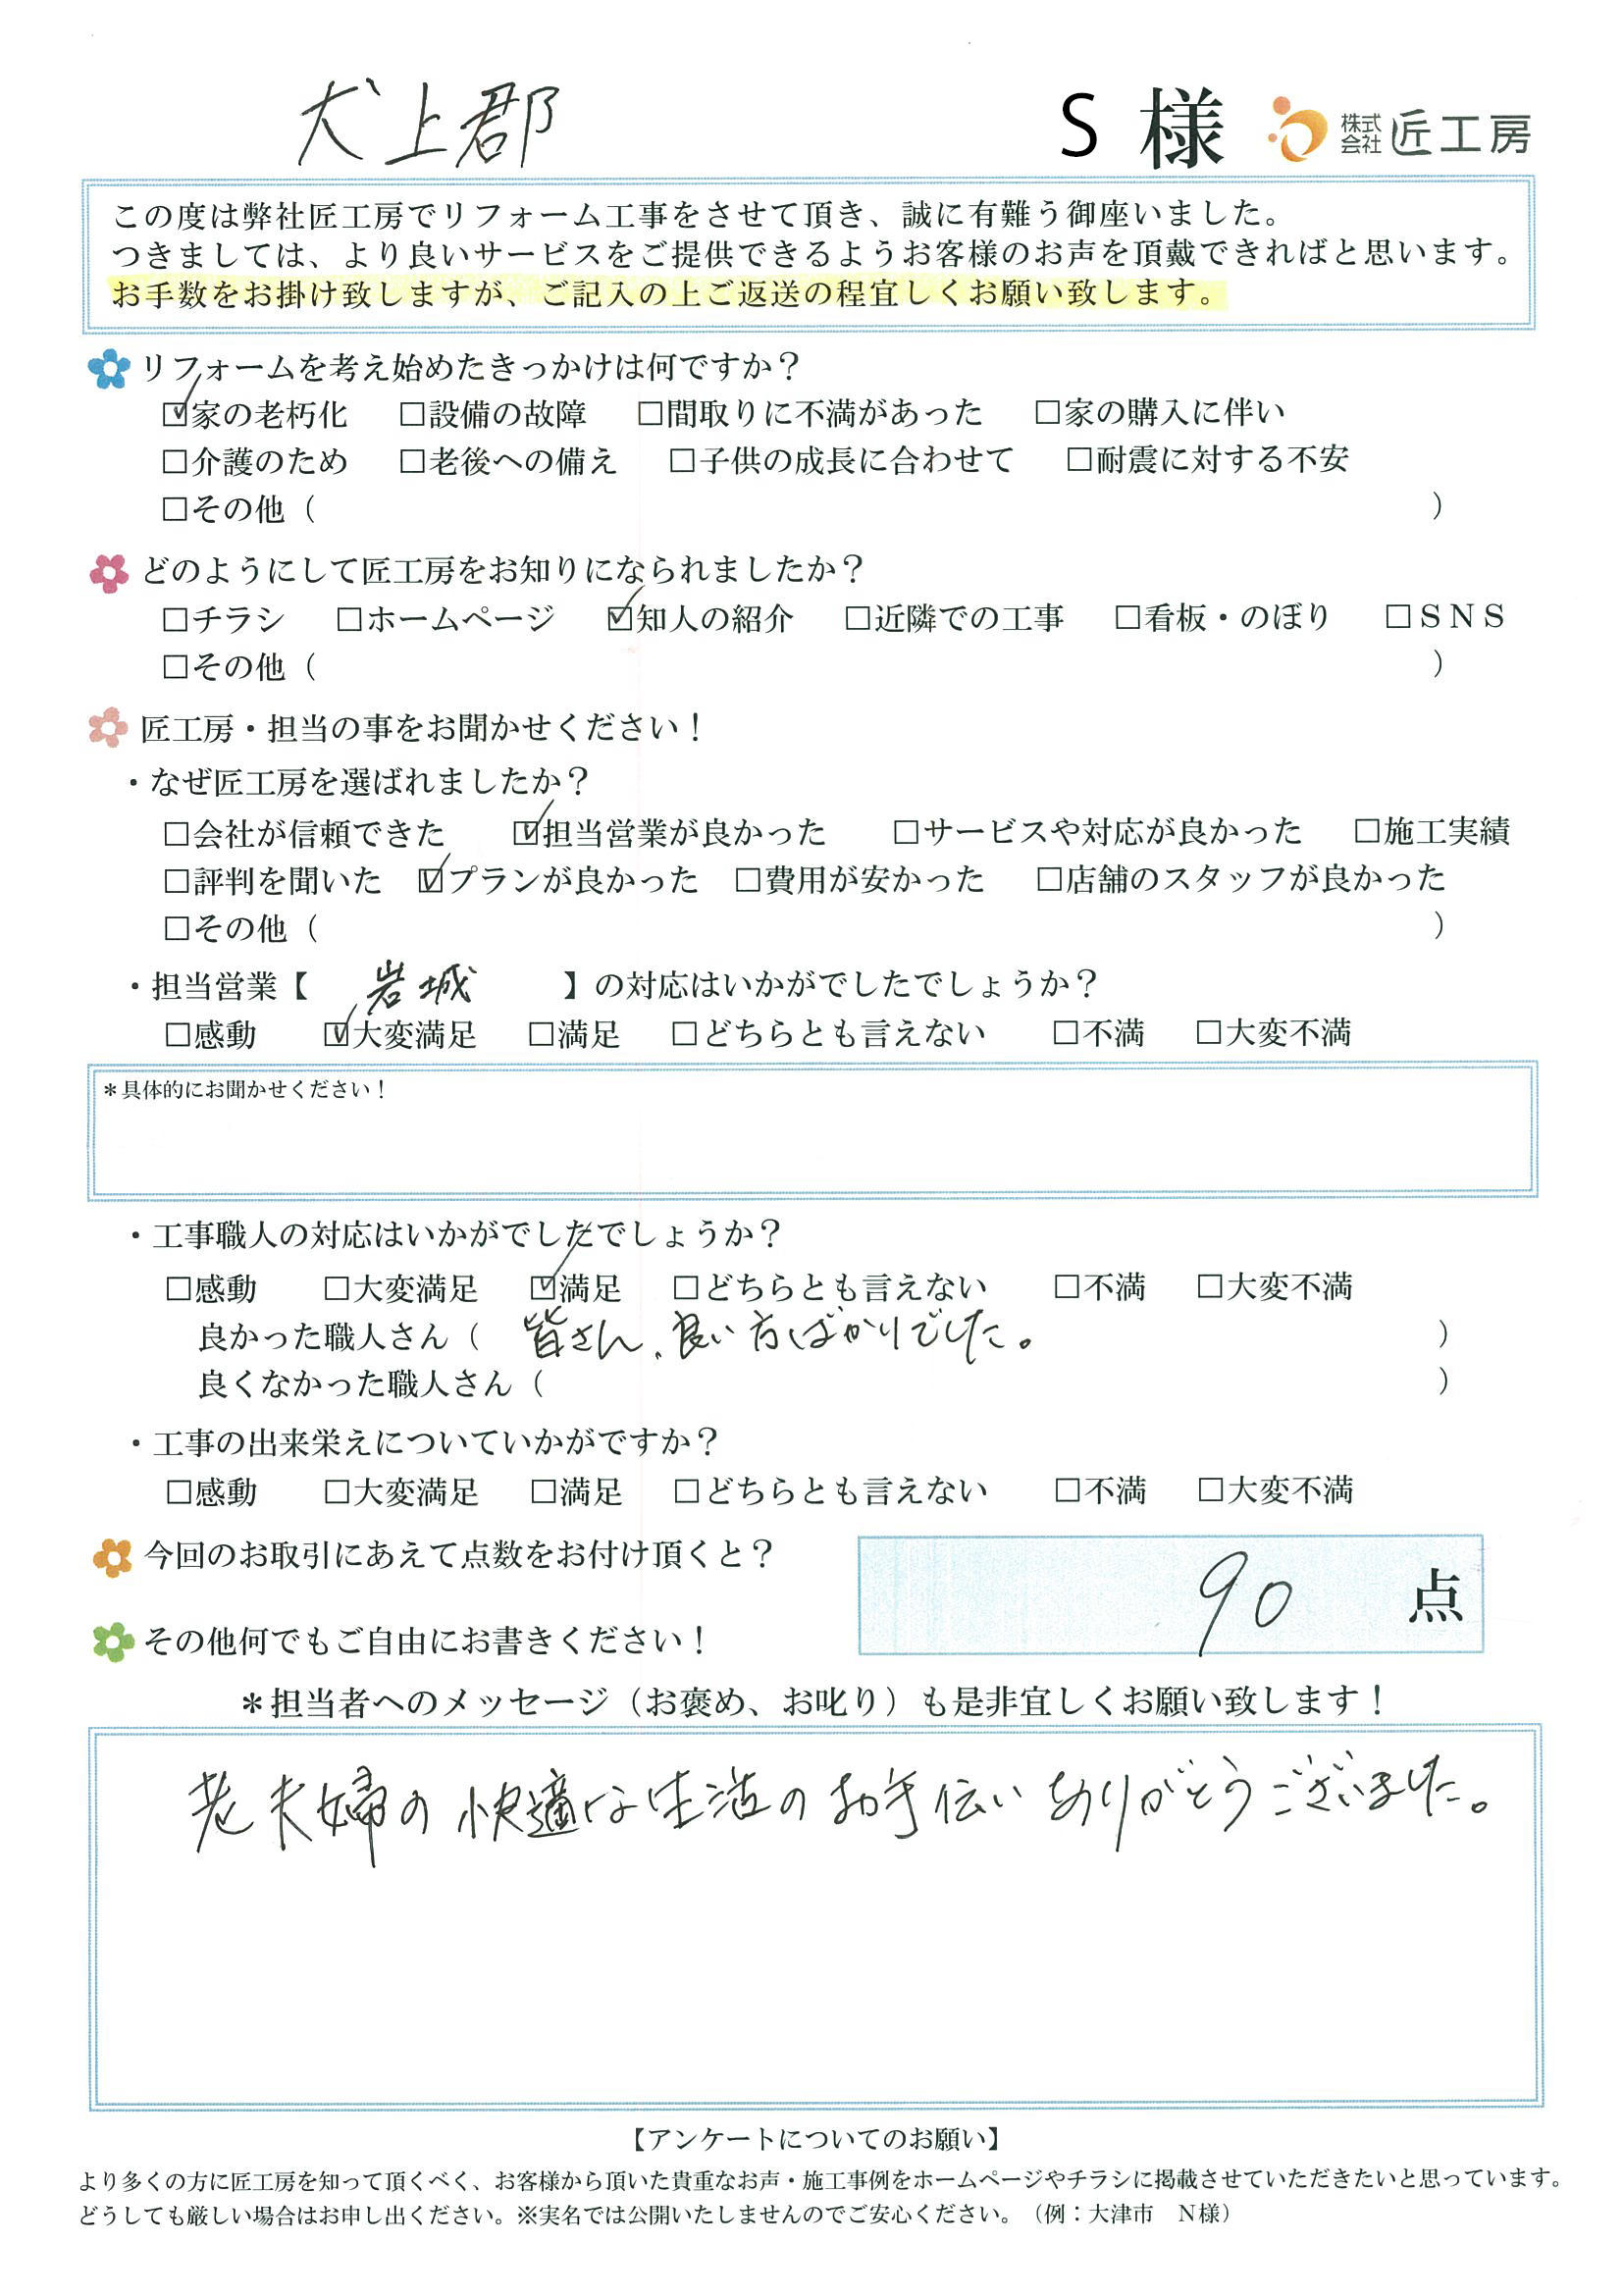 犬上郡 S 様 株式会社 匠工房
この度は弊社匠工房でリフォーム工事をさせて頂き、誠に有難う御座いました。
つきましては、より良いサービスをご提供できるようお客様のお声を頂戴できればと思います。
お手数をお掛け致しますが、ご記入の上ご返送の程宜しくお願い致します。
リフォームを考え始めたきっかけは何ですか？
☑家の老朽化 □設備の故障 □間取りに不満があった □家の購入に伴い
□介護のため □老後への備え □子供の成長に合わせて □耐震に対する不安
□その他（ ）
どのようにして匠工房をお知りになられましたか？
□チラシ □ホームページ ☑知人の紹介 □近隣での工事 □看板・のぼり □ＳＮＳ
□その他（ ）
匠工房・担当の事をお聞かせください！
・なぜ匠工房を選ばれましたか？
□会社が信頼できた ☑担当営業が良かった □サービスや対応が良かった □施工実績
□評判を聞いた ☑プランが良かった □費用が安かった □店舗のスタッフが良かった
□その他（ ）
・担当営業【 岩城 】の対応はいかがでしたでしょうか？
□感動 ☑大変満足 □満足 □どちらとも言えない □不満 □大変不満
＊具体的にお聞かせください！
・工事職人の対応はいかがでしたでしょうか？
□感動 □大変満足 ☑満足 □どちらとも言えない □不満 □大変不満
良かった職人さん（ 皆さん、良い方ばかりでした。 ）
良くなかった職人さん（ ）
・工事の出来栄えについていかがですか？
□感動 □大変満足 □満足 □どちらとも言えない □不満 □大変不満
今回のお取引にあえて点数をお付け頂くと？
90 点
その他何でもご自由にお書きください！
＊担当者へのメッセージ（お褒め、お叱り）も是非宜しくお願い致します！
老夫婦の快適な生活のお手伝いありがとうございました。
【アンケートについてのお願い】
より多くの方に匠工房を知って頂くべく、お客様から頂いた貴重なお声・施工事例をホームページやチラシに掲載させていただきたいと思っています。
どうしても厳しい場合はお申し出ください。※実名では公開いたしませんのでご安心ください。（例：大津市 Ｎ様）